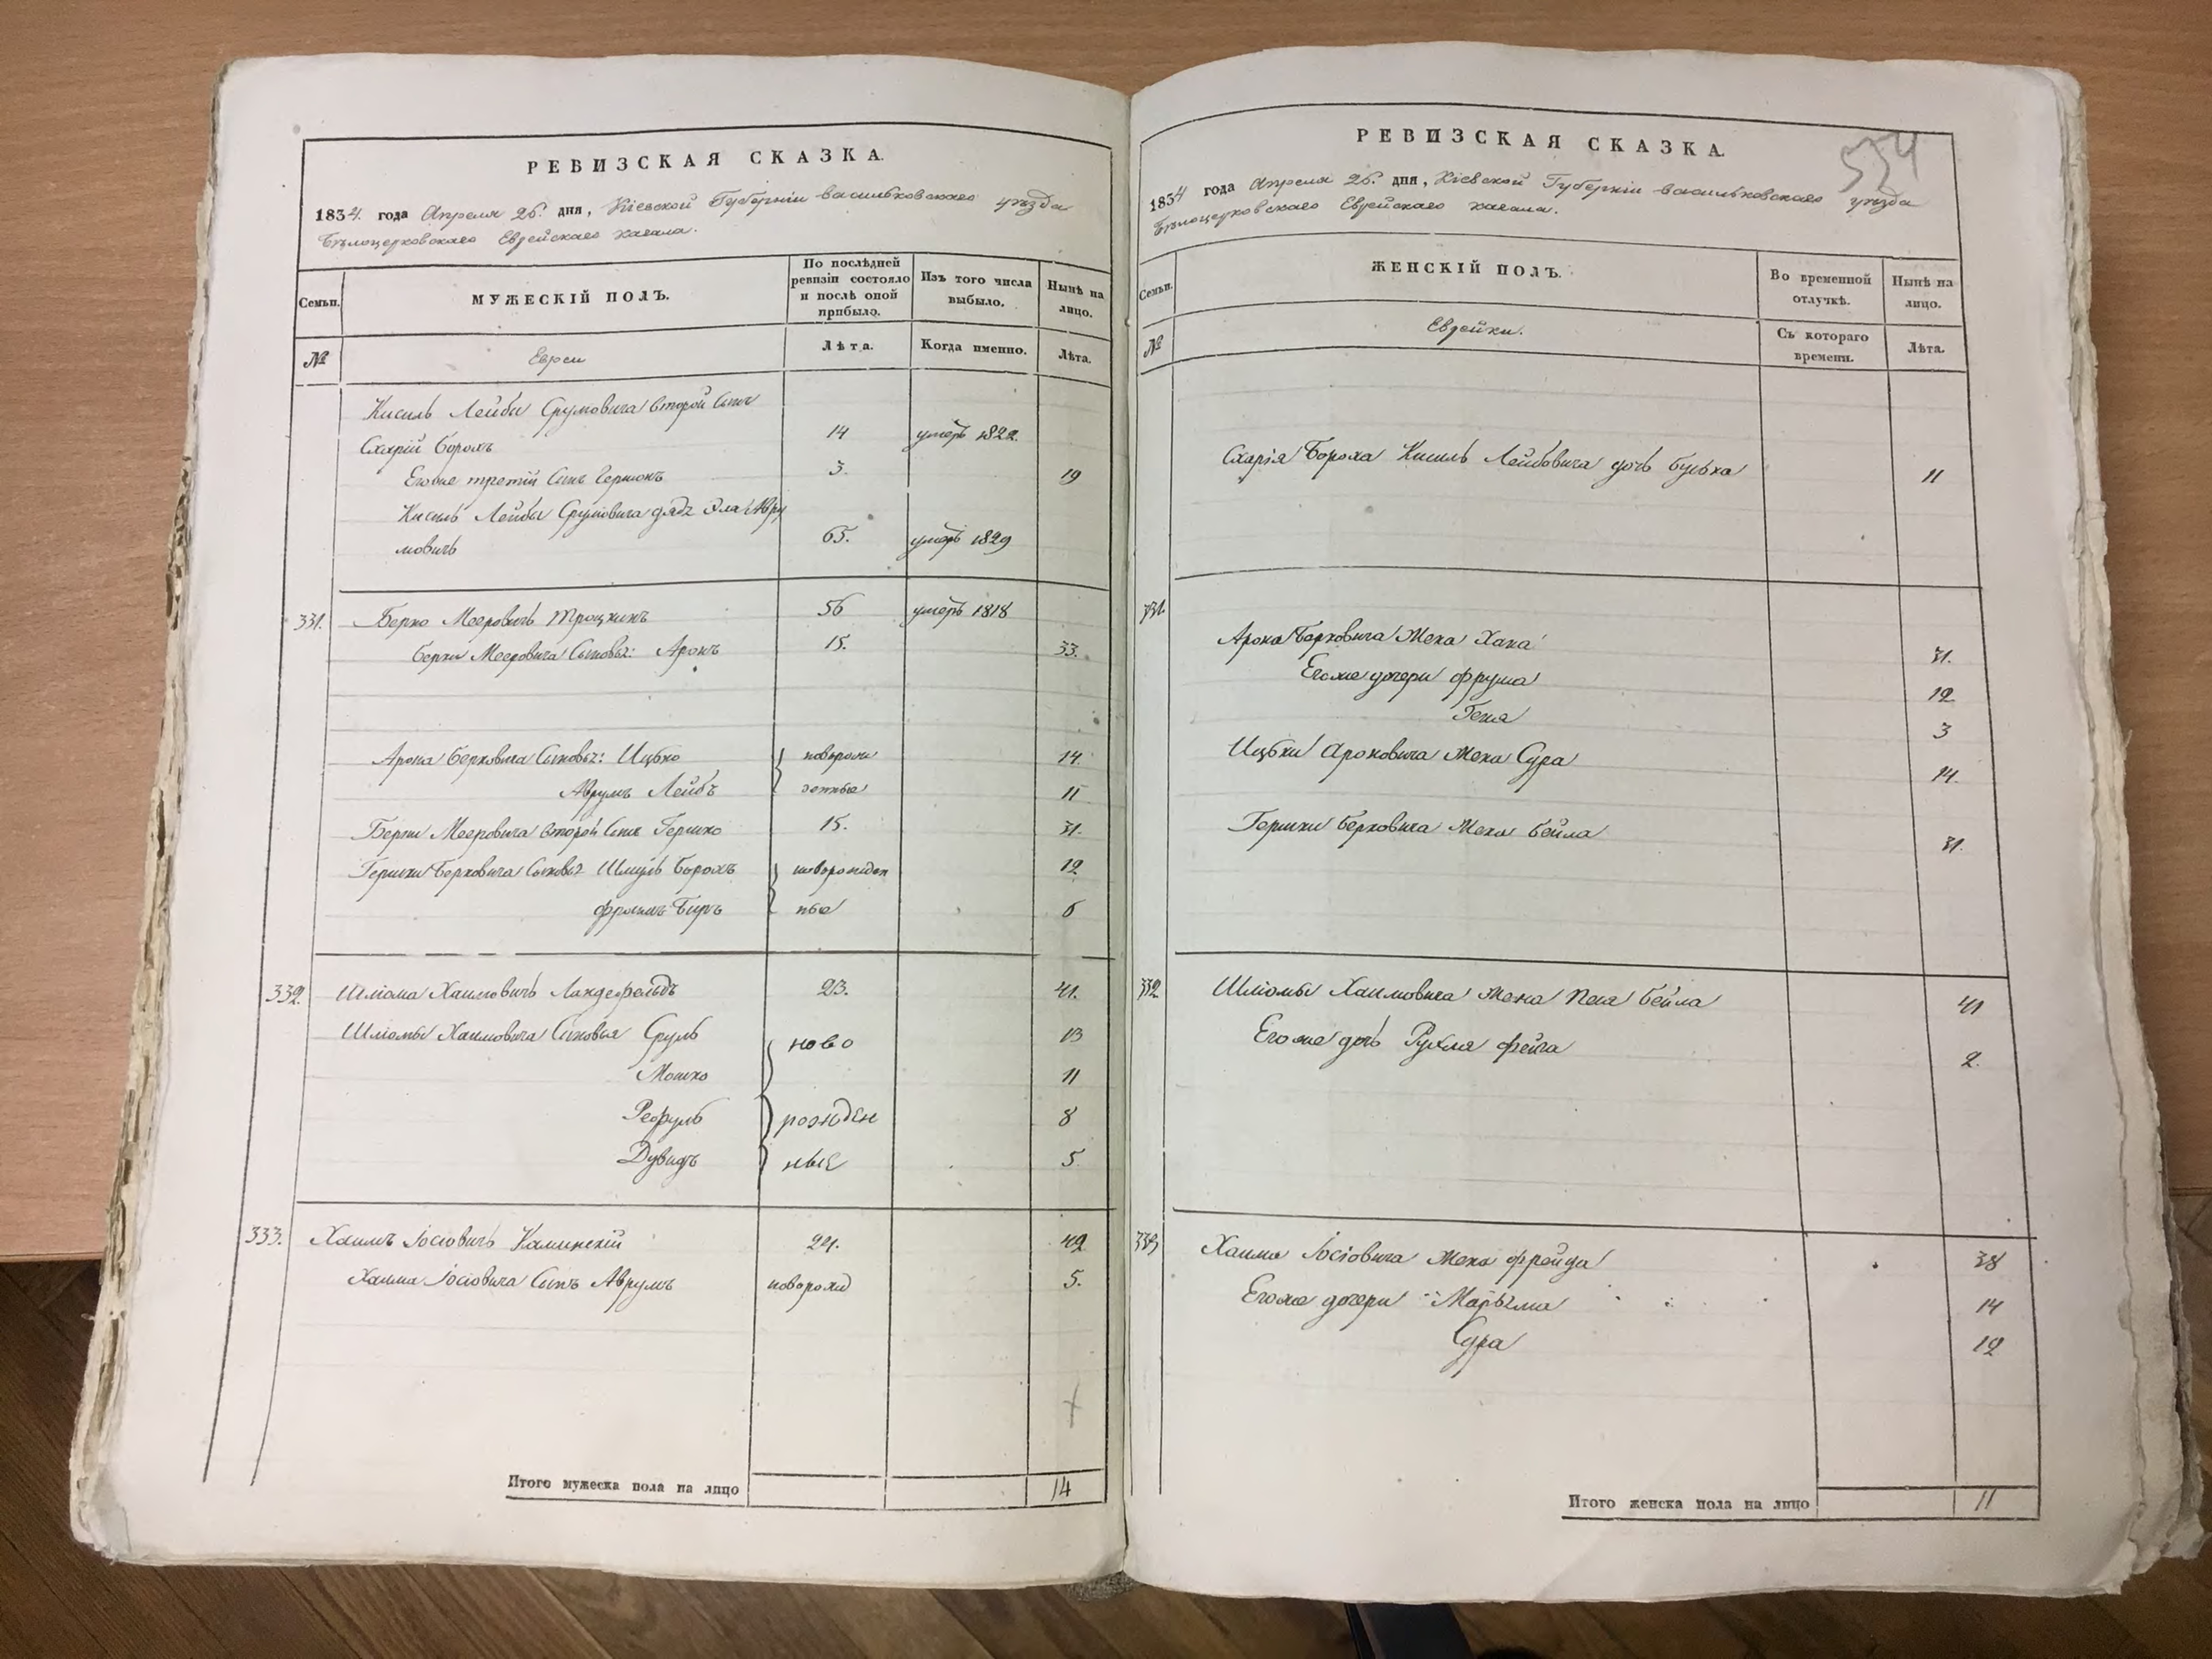 РЕВИЗСКАЯ СКАЗКА.
1834 года Апреля 26. дня, Кіевской Губерніи васильковскаго уѣзда
Бѣлоцерковскаго Еврейскаго кагала.
Семьи.
МУЖЕСКІЙ ПОЛЪ.
По послѣдней ревизіи состояло и послѣ оной прибыло.
Изъ того числа выбыло.
Нынѣ на лицо.
№
Евреи
Лѣта.
Когда именно.
Лѣта.
Кисиль Лейбы Срумовича второй Сынъ
Схарій Борохъ 14 умеръ 1822.
Егоже третій Сынъ Гершонъ 3. 19
Кисиль Лейбы Срумовича дядя Эла Авру
мовичь 65. умеръ 1829
331. Берко Мееровичь Троцкинъ 56 умеръ 1818
Берки Мееровича Сыновья: Аронъ 15. 33.
Арона Берковича Сыновья: Ицько новорож 14.
Аврумъ Лейбъ денные 11
Берки Мееровича второй Сынъ Гершко 15. 31.
Гершки Берковича Сыновья Шмуль Борохъ новорожден 12
Фроимъ Беръ ные 6
332. Шліома Хаимовичь Ландсфельдъ 23. 41.
Шліомы Хаимовича Сыновья Сруль ново 13
Мошко 11
Рефуль рожден 8
Дувидъ ные 5.
333. Хаимъ Іосіовичь Калинскій 24. 42
Хаима Іосіовича Сынъ Аврумъ новорожд 5.
Итого мужеска пола на лицо 14
РЕВИЗСКАЯ СКАЗКА.
534
1834 года Апреля 26. дня, Кіевской Губерніи васильковскаго уѣзда
Бѣлоцерковскаго Еврейскаго кагала.
Семьи.
ЖЕНСКІЙ ПОЛЪ.
Во временной отлучкѣ.
Нынѣ на лицо.
№
Еврейки.
Съ котораго времени.
Лѣта.
Схарія Бороха Кисиль Лейбовича дочь Бузька 11
331.
Арона Берковича Жена Хана 31.
Егоже дочери Фрума 12
Геня 3
Ицьки Ароновича Жена Сура 14.
Гершки Берковича Жена Бейла 31.
332. Шліомы Хаимовича Жена Песа Бейла 41
Егоже дочь Рухля Фейга 2.
333 Хаима Іосіовича Жена Фрейда 38
Егоже дочери Марьяма 14
Сура 12
Итого женска пола на лицо 11